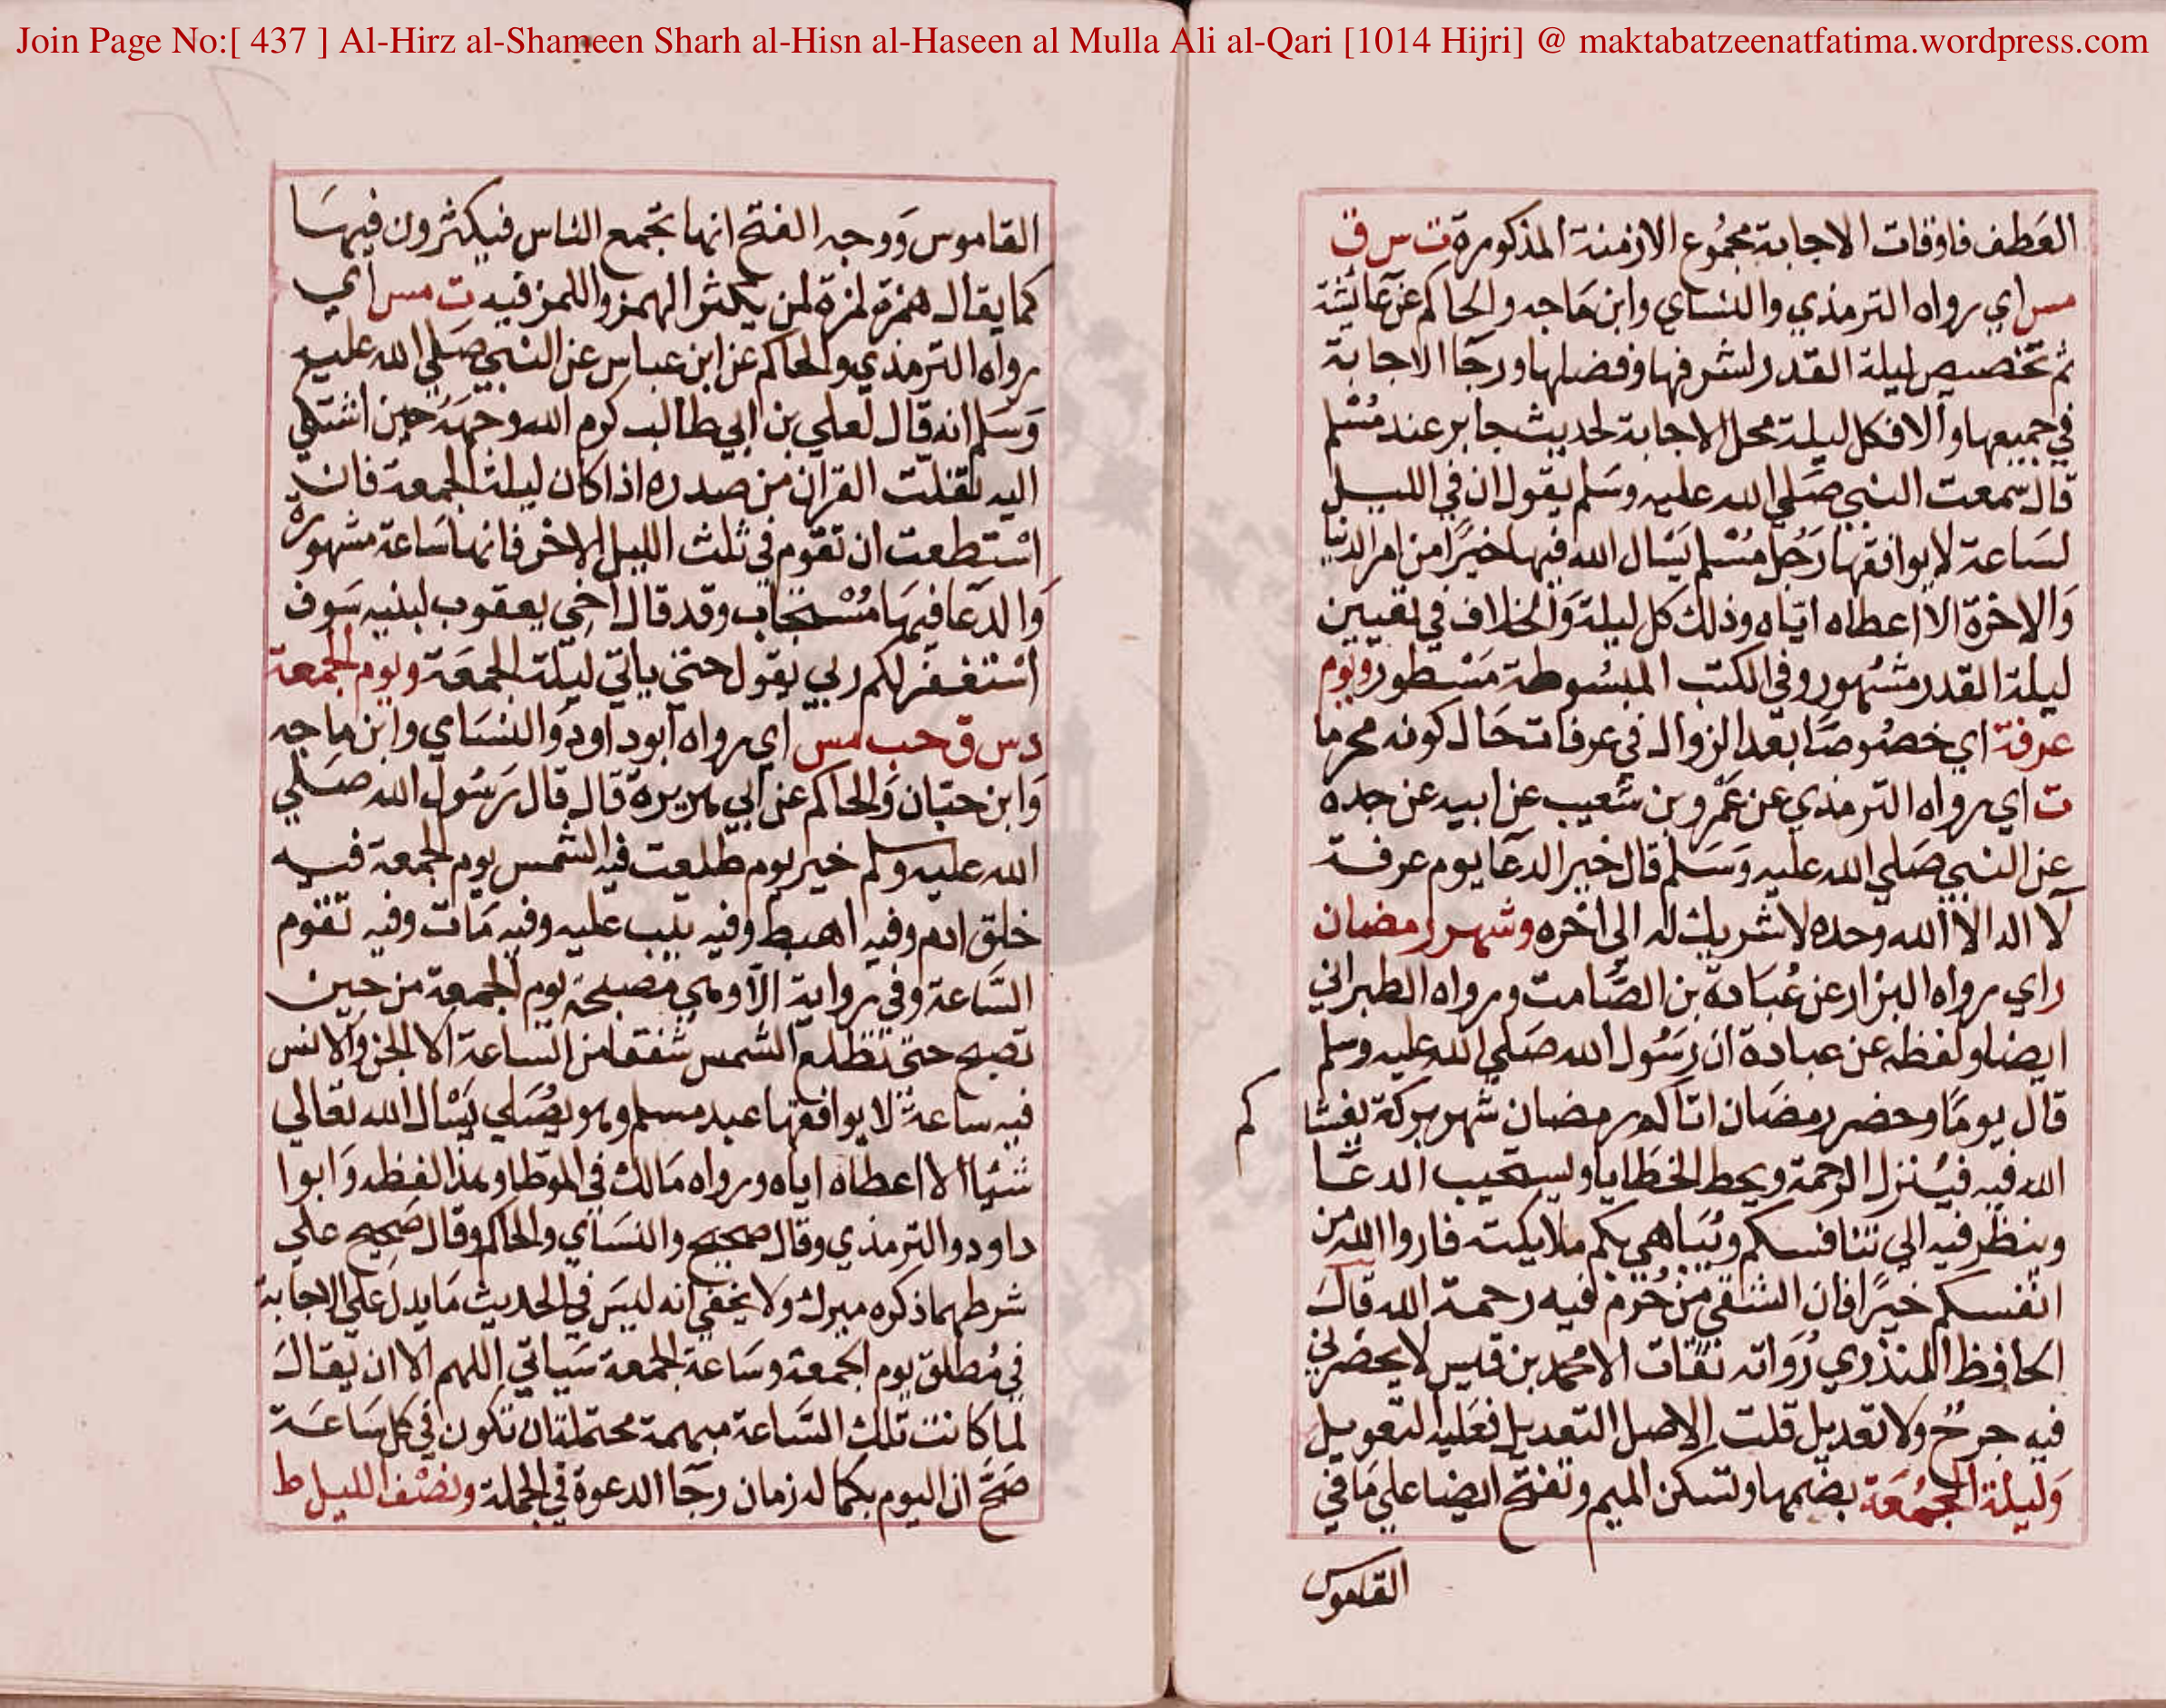 Join Page No:[ 437 ] Al-Hirz al-Shameen Sharh al-Hisn al-Haseen al Mulla Ali al-Qari [1014 Hijri] @ maktabatzeenatfatima.wordpress.com
العَطف فاوقات الاجابة مجمُوع الازمنة المذكورة ت س ق
مس اي رواه الترمذي والنساي وابن مَاجه والحاكم عن عَائشة
ثم تخصيص ليلة القدر لشرفها وفضلها ورجَا الاجابة
في جميعها وَالا فكل ليلة محل الاجابة لحديث جابر عند مُسْلم
قال سمعت النبي صَلي الله عليه وسَلم يقول ان في الليل
لسَاعة لا يوافقها رَجُل مُسْلم يَسْال الله فيها خيرًا من امر الدنيا
وَالاخرة الا اعطاه اياه وذلك كل ليلة وَالخلاف في تعيين
ليلة القدر مشهور وفي الكتب المبسُوطة مَسْطور ويوم
عرفة اي خصُوصًا بعد الزوال في عرفات حَال كونه محرما
ت اي رواه الترمذي عن عَمْرو بن شعيب عن ابيه عن جده
عن النبي صَلي الله عليه وَسَلم قال خير الدعَا يوم عرفة
لا اله الا الله وحده لا شريك له الي اخره وشهر رمضان
ر اي رواه البزار عن عُبَادة بن الصَّامت ورواه الطبراني
ايضا ولفظه عن عبادة ان رَسُول الله صَلي الله عليه وسلم
قال يومًا وحضر رمضان اتاكم رمضان شهر بركة يغشا
كم
الله فيه فيُنزل الرحمة ويحط الخطايا ويستجيب الدعَا
وينظر فيه الي تنافسكم وَيُبَاهي بكم ملايكته فاروا الله من
انفسكم خيرًا فان الشقي من حُرِم فيه رحمة الله قال
الحافظ المنذري رُوَاته ثقات الا محمد بن قيس لا يحضرني
فيه جرحٌ ولا تعديل قلت الاصل التعديل فعَليه التعويل
وَليلة الجمُعَة بضمها وتسكن الميم وتفتح ايضا علي مَا في
القاموس
القاموس وَوجه الفتح انها تجمع الناس فيكثرون فيهَا
كما يقال همزة لمزة لمن يكثر الهمز واللمز فيه ت مس اي
رواه الترمذي والحاكم عن ابن عباس عن النبي صَلي الله عليه
وَسَلم انه قال لعلي بن ابي طالب كرم الله وجهَهُ حين اشتكي
اليه تفلت القران من صدره اذا كان ليلة الجمعة فان
اسْتطعت ان تقوم في ثلث الليل الاخر فانها سَاعة مشهورة
وَالدعَا فيهَا مُسْتجَاب وقد قال اخي يعقوب لبنيه سَوف
اسْتغفر لكم ربي يقول حتي ياتي ليلة الجمعَة ويوم الجمعة
د س ق حب مس اي رواه ابو داود وَالنسَاي وابن ماجه
وَابن حبّان وَالحاكم عن ابي هريرة قال قال رَسُول الله صَلي
الله عليه وسلم خير يوم طلعت فيه الشمس يوم الجمعة فيه
خلق ادم وفيه اهبط وفيه تيب عليه وفيه مَات وفيه تقوم
السَّاعة وفي رواية الا وهي مصبحة يوم الجمعة من حين
تصبح حتي تطلع الشمس شفقا من السَّاعة الا الجن وَالانس
فيه ساعة لا يوافقها عبد مسلم وهو يُصَلي يَسْال الله تعالي
شيًا الا اعطاه اياه ورواه مَالك في الموَطا وهذا لفظه وَابوا
داود والترمذي وقال صحيح والنسَاي والحاكم وقال صَحيح علي
شرطهما ذكره ميرك ولا يخفي انه ليسَ في الحديث مَا يدل علي الاجابة
في مُطلق يوم الجمعة وسَاعة الجمعة سَياتي اللهم الا ان يقال
لما كانت تلك السَّاعة مبهمة محتملة ان تكون في كل سَاعَة
صَحَّ ان اليوم بكماله زمان رجَا الدعوة في الجملة ونصْف الليل ط